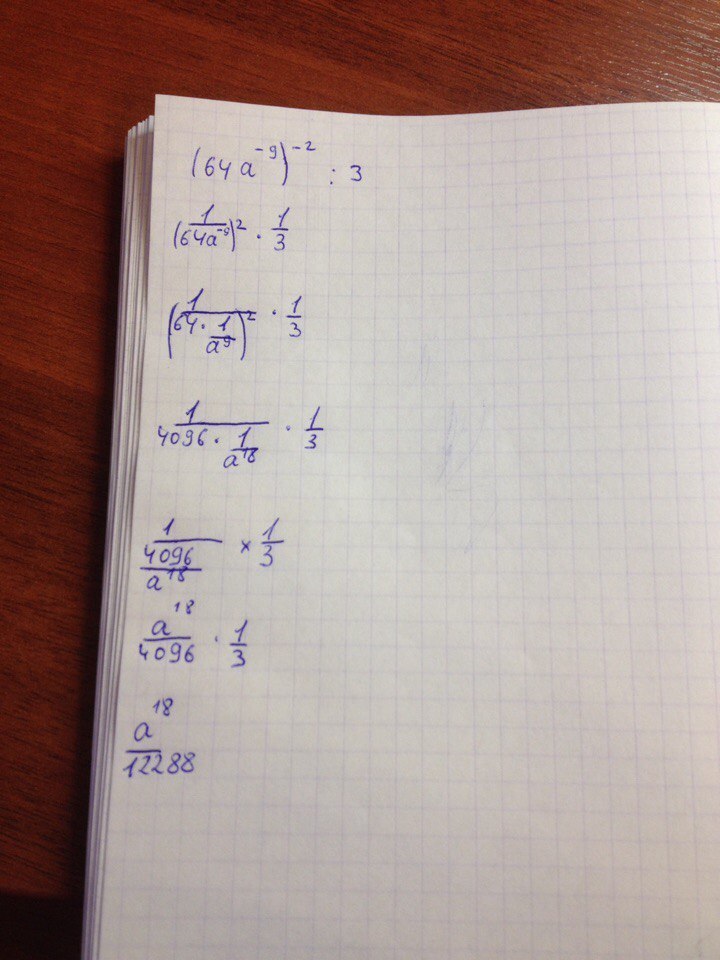 (64a⁻⁹)⁻² : 3
(1/(64a⁻⁹))² · 1/3
(1/(64 · 1/a⁹))² · 1/3
1/(4096 · 1/a¹⁸) · 1/3
1/(4096/a¹⁸) × 1/3
a¹⁸/4096 · 1/3
a¹⁸/12288